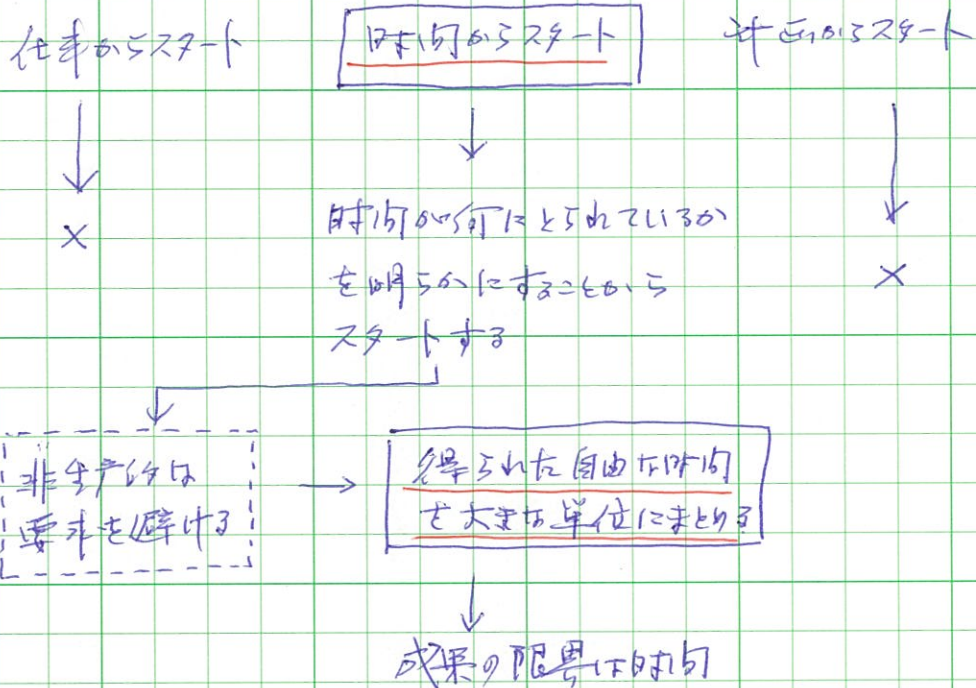 仕事からスタート
時間からスタート
計画からスタート
×
時間が何にとられているか
を明らかにすることから
スタートする
×
非生産的な
要求を避ける
得られた自由な時間
を大きな単位にまとめる
成果の限界は時間